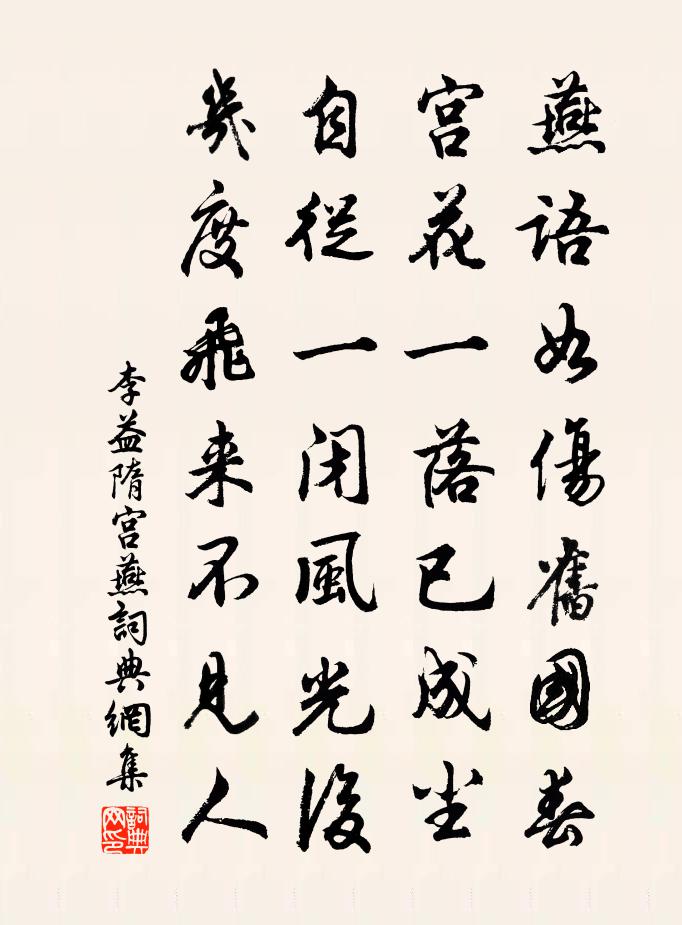 燕語如傷舊國春
宮花一落已成尘
自從一闭風光後
幾度飛来不見人
李益隋宮燕詞典網集
詞典网印